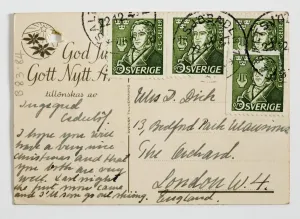 God Ju
Gott Nytt Å
tillönskas av
Ingegerd
I hope you will
have a very nice
Christmas and that
you both are very
well. Last night
the first snow came
and I'll soon go out skiing.
B 83 84
5 SVERIGE
5 SVERIGE
SVERIGE
SVERIGE
D. Dick
13 Bedford Park Mansions
The Orchard
London W.4.
England